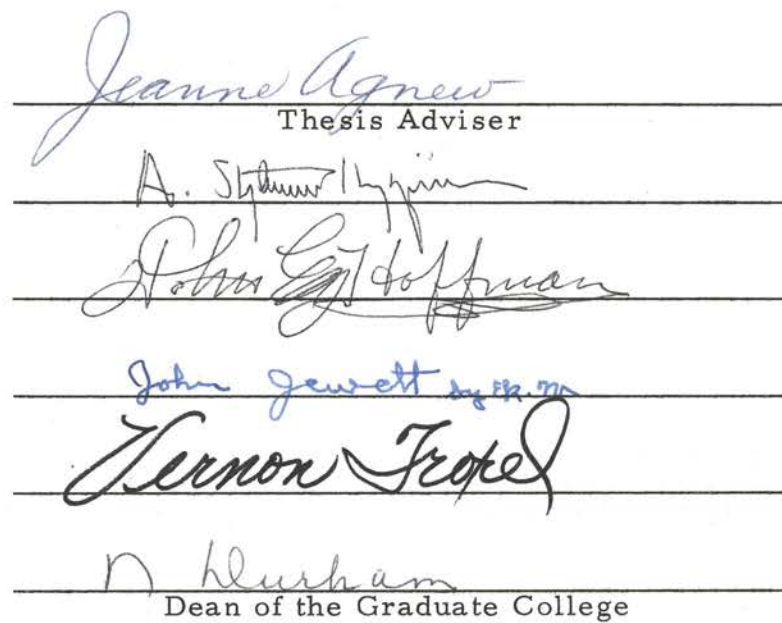 Jeanne Agnew
Thesis Adviser
A.
John Hoffman
John Jewett by
Vernon Troxel
N Durham
Dean of the Graduate College